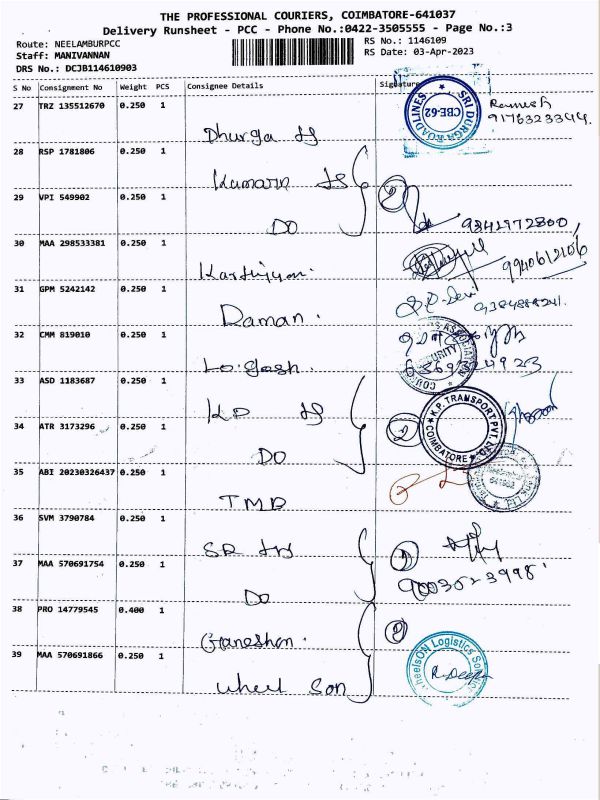 THE PROFESSIONAL COURIERS, COIMBATORE-641037
Delivery Runsheet - PCC - Phone No.:0422-3505555 - Page No.:3
Route: NEELAMBURPCC
RS No.: 1146109
Staff: MANIVANNAN
RS Date: 03-Apr-2023
DRS No.: DCJB114610903
S No Consignment No Weight PCS Consignee Details Signature
27 TRZ 135512670 0.250 1
SRI DURGA ROADLINES
CBE-62
Ramesh
Dhurga
28 RSP 1781806 0.250 1
Kumaran
29 VPI 549902 0.250 1
DO
9842972800,
30 MAA 298533381 0.250 1
9940612106
31 GPM 5242142 0.250 1
Raman.
32 CMM 819010 0.250 1
SECURITY
Logesh.
33 ASD 1183687 0.250 1
KP
K.P. TRANSPORT PVT. LTD.
COIMBATORE
34 ATR 3173296 0.250 1
DO
35 ABI 20230326437 0.250 1
TMB
36 SVM 3790784 0.250 1
SR
37 MAA 570691754 0.250 1
DO
38 PRO 14779545 0.400 1
Ganeshan.
39 MAA 570691866 0.250 1
wheel Son